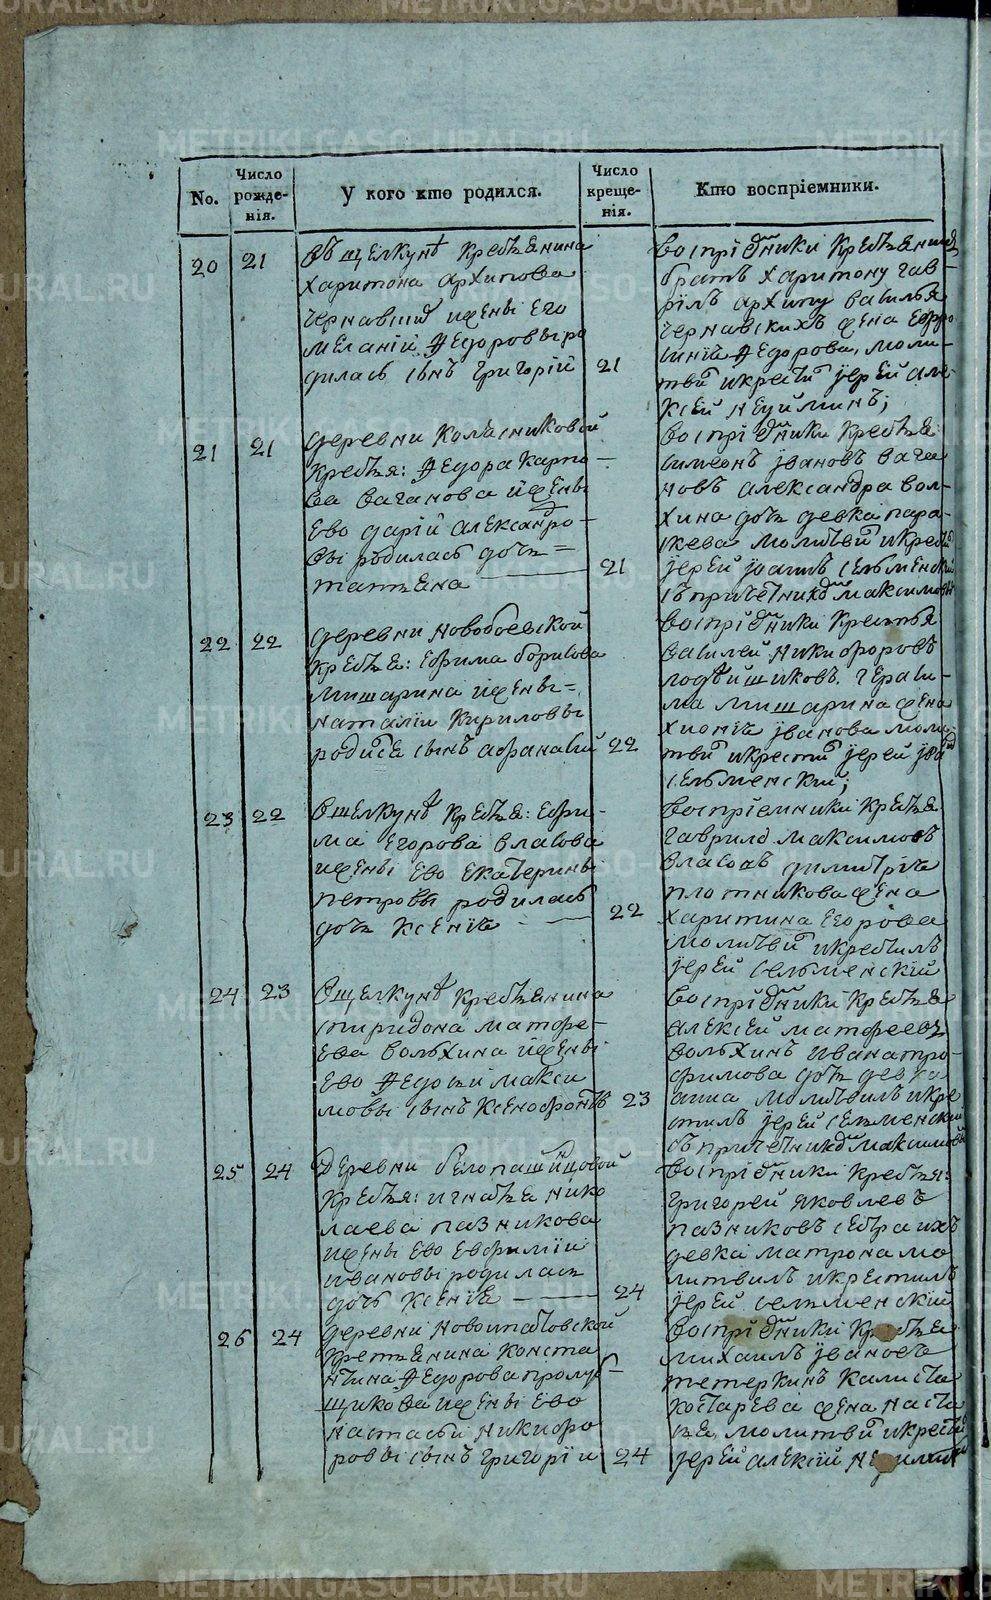 No.
Число рожде-нія.
У кого кто родился.
Число креще-нія.
Кто воспріемники.
20 21
въ щелкунѣ Крестьянина
харитона архипова
чернавских жены его
меланіи Ѳедоровы ро
дилась сынъ григорій 21
воспріемники Крестьянинъ
братъ харитону гав-
рілъ архипу василья
чернавскихъ жена ефро
сінія Ѳедорова, моли-
твил икрестил іерей але-
ксей
21 21
деревни колясниковой
крестья: Ѳедора карпо-
ва ваганова ижены
ево даріи александро-
вы родилась дочь=
татьяна 21
воспріемники крестья:
симеонъ ивановъ вага
новъ александра вол-
хина дочь девка пара-
скева молитвил икрестил
іерей іоаннъ сельменскій
съ причетником максимовы
22 22
деревни новобоевской
крестья: ефима борисова
мишарина ижены=
наталіи кириловы
родился сынъ афанасій 22
воспріемники крестья
василей никифоровъ
гераси-
ма мишарина жена
хионія иванова моли
твил икрестил іерей іоа
сельменскій;
23 22
вщелкунѣ крестья: ефи-
ма егорова власова
ижены ево екатерины
петровы родилась
дочь ксенія 22
воспріемники крестья
гаврило максимовъ
власовъ димитрія
плотникова жена
харитина егорова
молитвил икрестилъ
іерей сельменскій
24 23
вщелкунѣ крестьянина
спиридона матфе-
ева вольхина ижены
ево Ѳедосьи макси
мовы сынъ ксенофонтъ 23
воспріемники крестья
алексей матфеевъ
вольхинъ ивана тро-
фимова дочь девка
анна молитвилъ икре
стилъ іерей сельменскій
съ причетником максимовы
25 24
деревни белопашинцовой
крестья: игнатья нико
лаева пазникова
ижены ево евфиміи
ивановы родилась
дочь ксенія 24
воспріемники крестья:
григорей яковлевъ
пазниковъ сестра ихъ
девка матрона мо
литвилъ икрестилъ
іерей сельменскій
26 24
деревни новоипатовской
кретьянина конста
нтина Ѳедорова пролуб-
щикова ижены ево
настасьи никифо
ровы сынъ григоріи 24
воспріемники крестья
михаилъ ивановъ
тетеркинъ калиста
костарева жена настась
я молитвил икрестил
іерей алексій
METRIKI.GASO-URAL.RU